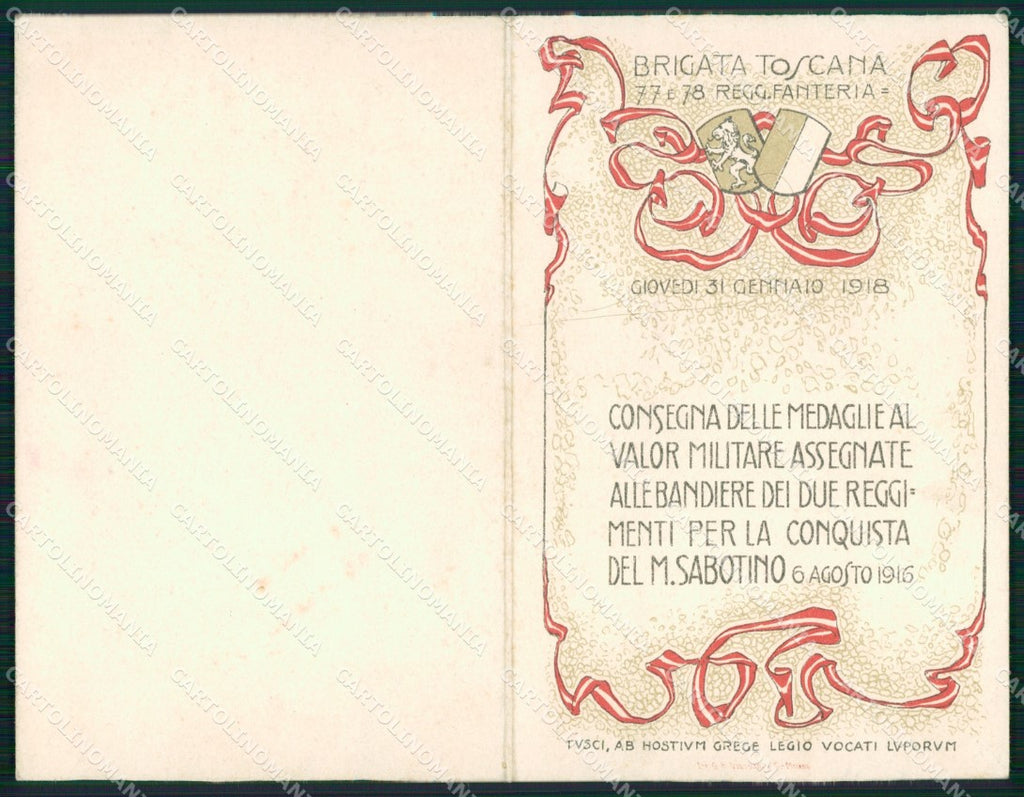 BRIGATA TOSCANA
77 E 78 REGG. FANTERIA =
GIOVEDI 31 GENNAIO 1918
CONSEGNA DELLE MEDAGLIE AL
VALOR MILITARE ASSEGNATE
ALLE BANDIERE DEI DUE REGGI=
MENTI PER LA CONQUISTA
DEL M. SABOTINO 6 AGOSTO 1916
TVSCI, AB HOSTIVM GREGE LEGIO VOCATI LVPORVM
CARTOLINOMANIA